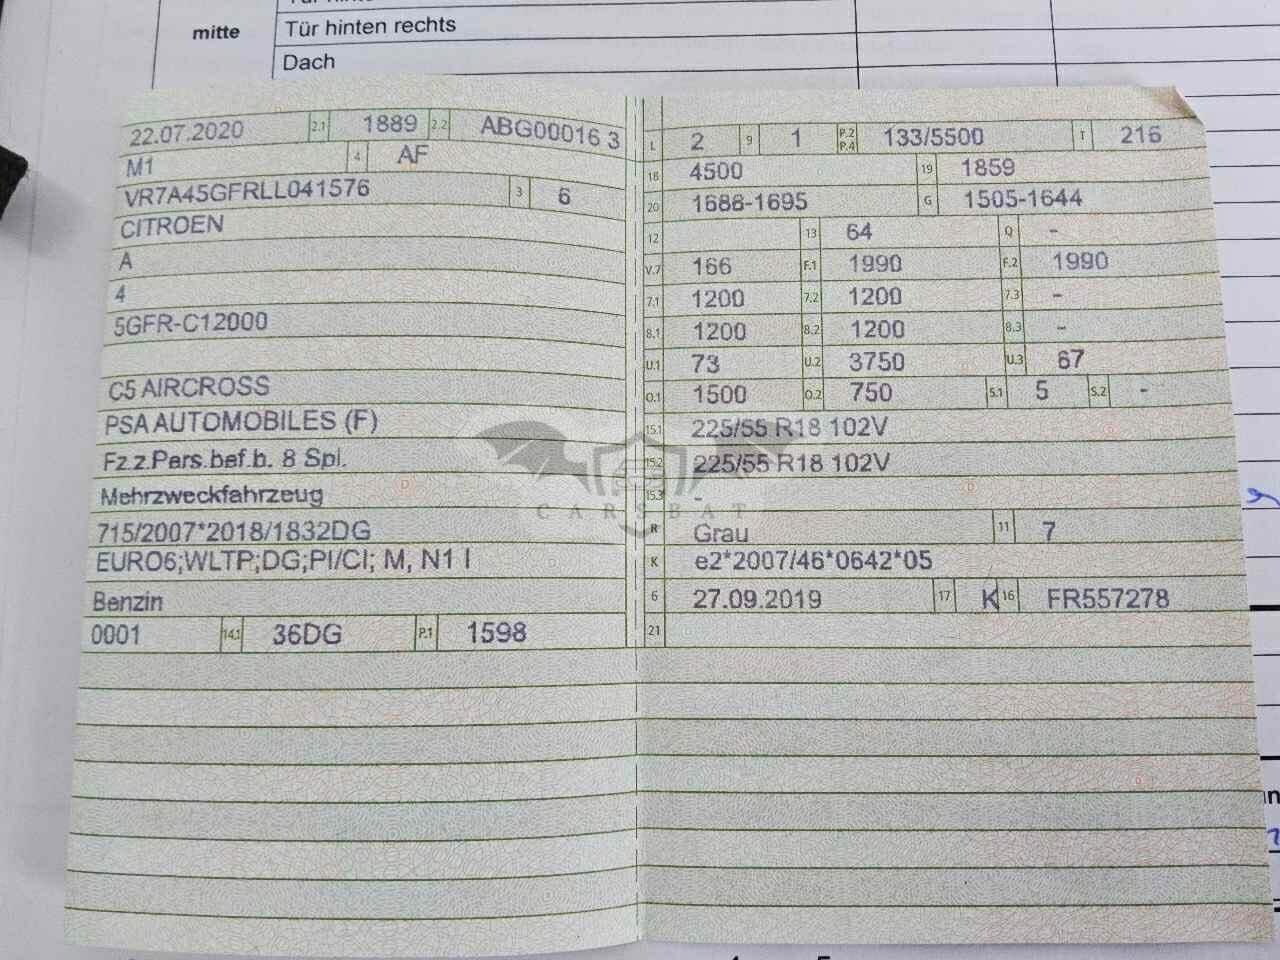 mitte
Tür hinten rechts
Dach
22.07.2020 2.1 1889 2.2 ABG00016 3
M1 4 AF
VR7A45GFRLL041576 3 6
CITROEN
A
4
5GFR-C12000
C5 AIRCROSS
PSA AUTOMOBILES (F)
Fz.z.Pers.bef.b. 8 Spl.
Mehrzweckfahrzeug
715/2007*2018/1832DG
EURO6;WLTP;DG;PI/CI; M, N1 I
Benzin
0001 14.1 36DG P.1 1598
L 2 9 1 P.2 P.4 133/5500 T 216
18 4500 19 1859
20 1688-1695 G 1505-1644
12 13 64 Q -
V.7 166 F.1 1990 F.2 1990
7.1 1200 7.2 1200 7.3 -
8.1 1200 8.2 1200 8.3 -
U.1 73 U.2 3750 U.3 67
O.1 1500 O.2 750 S.1 5 S.2 -
15.1 225/55 R18 102V
15.2 225/55 R18 102V
15.3 -
R Grau 11 7
K e2*2007/46*0642*05
6 27.09.2019 17 K 16 FR557278
21
CARSBAT